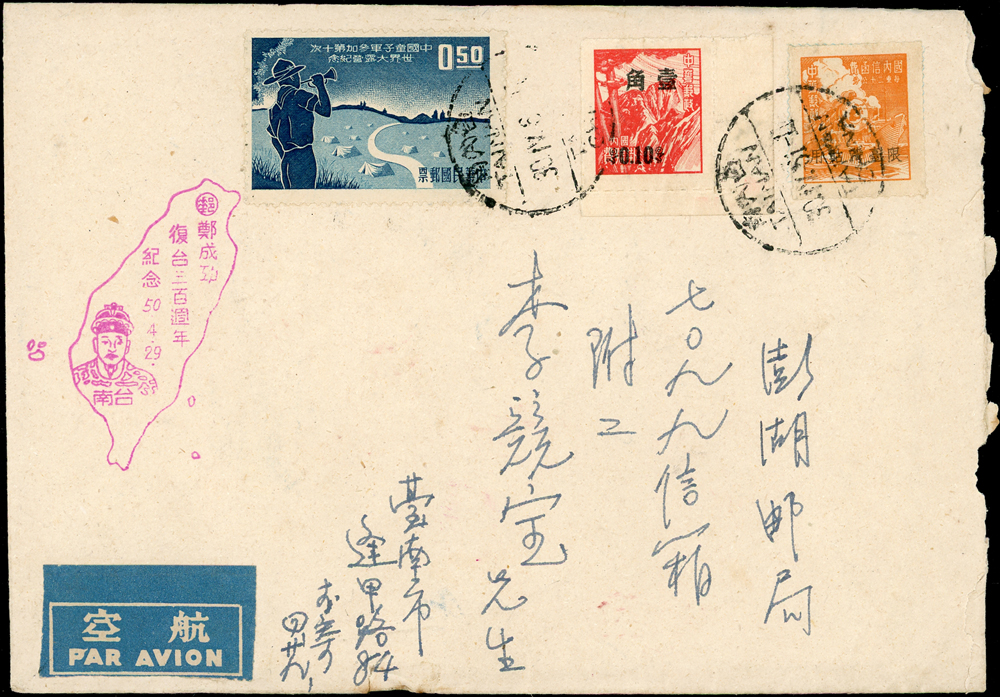 中國童子軍參加第十次
世界大露營紀念
0.50
中華民國郵票
壹角
中華郵政
0.10
國內信函費
中華郵政
限臺灣貼用
TAINAN
TAINAN
郵
鄭成功
復台三百週年
紀念 50.4.29.
台南
澎湖郵局
七〇九九信箱
附二
李競宝先生
臺南市
逢甲路84
四廿九,
航空
PAR AVION